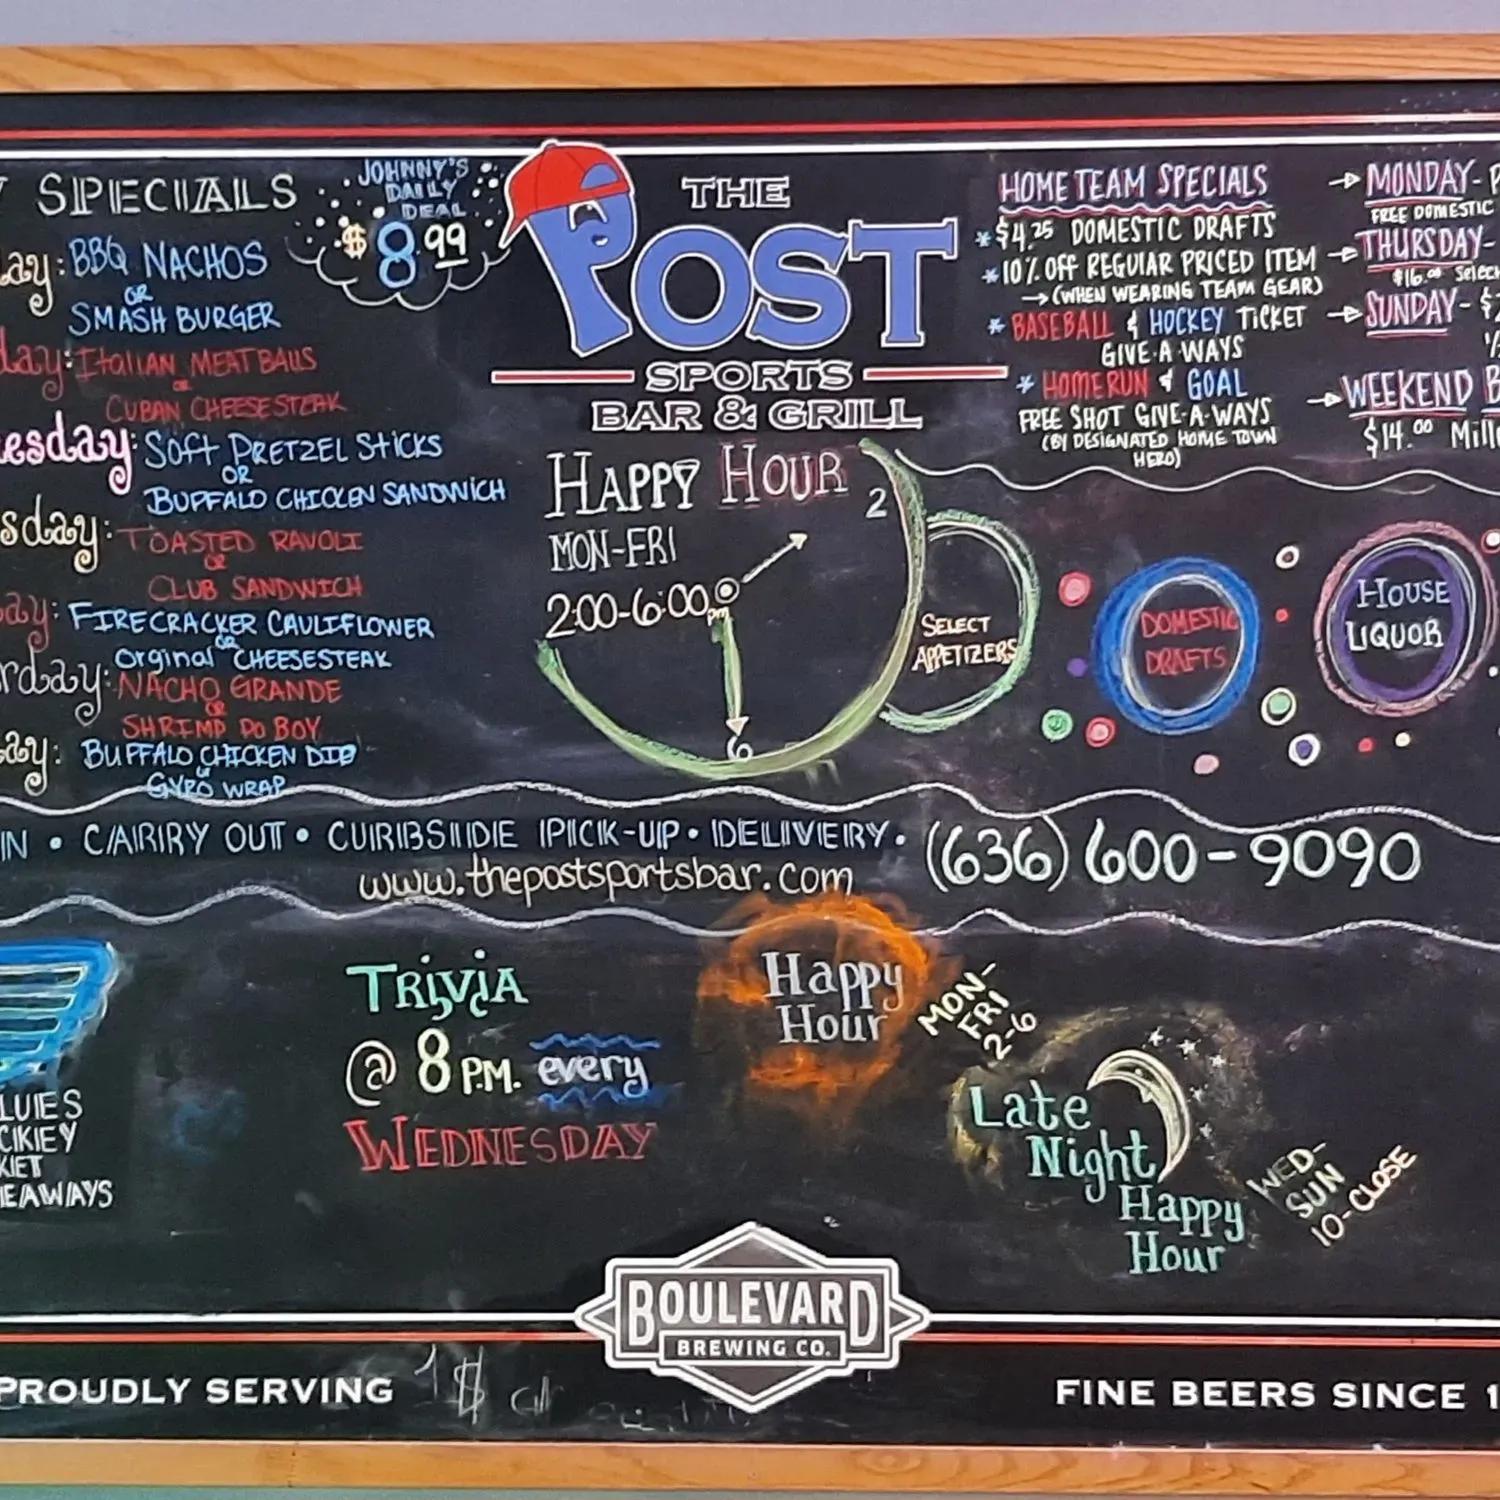 SPECIALS
JOHNNY'S
DAILY
DEAL
$8.99
BBQ NACHOS
OR
SMASH BURGER
ITALIAN MEATBALLS
OR
CUBAN CHEESESTEAK
SOFT PRETZEL STICKS
OR
BUFFALO CHICKEN SANDWICH
TOASTED RAVOLI
OR
CLUB SANDWICH
FIRECRACKER CAULIFLOWER
OR
Orginal CHEESESTEAK
NACHO GRANDE
OR
SHRIMP PO BOY
BUFFALO CHICKEN DIP
or
GYRO WRAP
THE
POST
SPORTS
BAR & GRILL
HAPPY HOUR
MON-FRI
2:00-6:00pm
2
6
SELECT
APPETIZERS
HOME TEAM SPECIALS
* $4.25 DOMESTIC DRAFTS
* 10% OFF REGULAR PRICED ITEM
→ (WHEN WEARING TEAM GEAR)
* BASEBALL & HOCKEY TICKET
GIVE-A-WAYS
* HOMERUN & GOAL
FREE SHOT GIVE-A-WAYS
(BY DESIGNATED HOME TOWN
HERO)
→ MONDAY-
FREE DOMESTIC
→ THURSDAY-
$16.00
→ SUNDAY- $
→ WEEKEND B
$14.00
DOMESTIC
DRAFTS
HOUSE
LIQUOR
IN • CARRY OUT • CURBSIDE PICK-UP • DELIVERY • (636) 600-9090
www.thepostsportsbar.com
TRIVIA
@ 8 P.M. every
WEDNESDAY
Happy
Hour
MON-
FRI
2-6
LATE
Night
Happy
Hour
WED-
SUN
10-CLOSE
BOULEVARD
BREWING CO.
PROUDLY SERVING
FINE BEERS SINCE 1